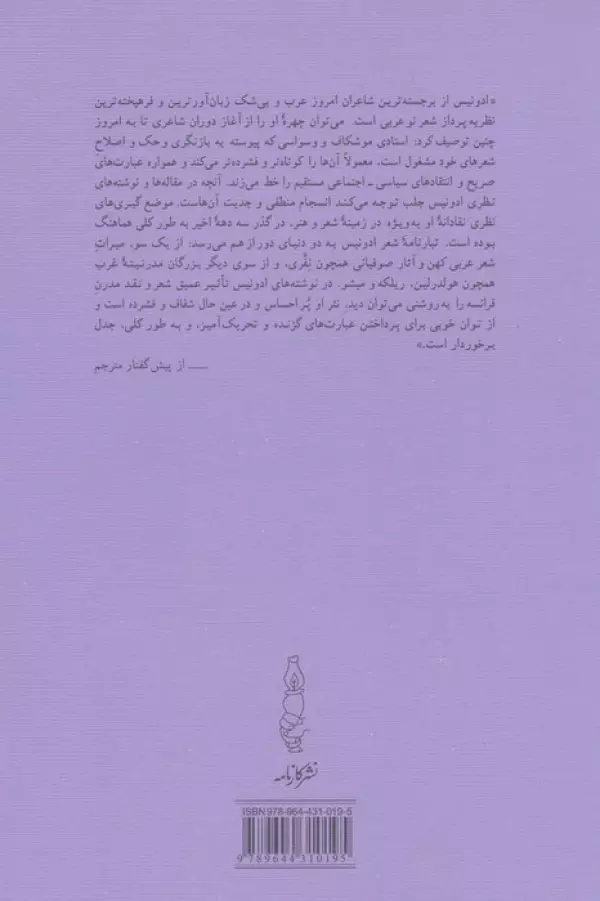 «ادونیس از برجسته‌ترین شاعران امروز عرب و بی‌شک زبان‌آورترین و فرهیخته‌ترین
نظریه‌پرداز شعر نو عربی است. می‌توان چهرهٔ او را از آغاز دوران شاعری تا به امروز
چنین توصیف کرد: استادی موشکاف و وسواسی که پیوسته به بازنگری و حک و اصلاح
شعرهای خود مشغول است، معمولاً آن‌ها را کوتاه‌تر و فشرده‌تر می‌کند و همواره عبارت‌های
صریح و انتقادهای سیاسی ـ اجتماعی مستقیم را خط می‌زند. آنچه در مقاله‌ها و نوشته‌های
نظری ادونیس جلب توجه می‌کند انسجام منطقی و جدیت آن‌هاست. موضع‌گیری‌های
نظری نقادانهٔ او به‌ویژه در زمینهٔ شعر و هنر، در گذر سه دههٔ اخیر به طور کلی هماهنگ
بوده است. تبارنامهٔ شعر ادونیس به دو دنیای دور از هم می‌رسد: از یک سو، میراث
شعر عربی کهن و آثار صوفیانی همچون نِفَّری، و از سوی دیگر بزرگان مدرنیتهٔ غرب
همچون هولدرلین، ریلکه و میشو. در نوشته‌های ادونیس تأثیر عمیق شعر و نقد مدرن
فرانسه را به‌روشنی می‌توان دید. نثر او پُراحساس و در عین حال شفاف و فشرده است و
از توان خوبی برای پرداختن عبارت‌های گزنده و تحریک‌آمیز، و به طور کلی، جدل
برخوردار است.»
ـــــ از پیش‌گفتار مترجم
نشر کارنامه
ISBN 978-964-431-019-5
9 789644 310195